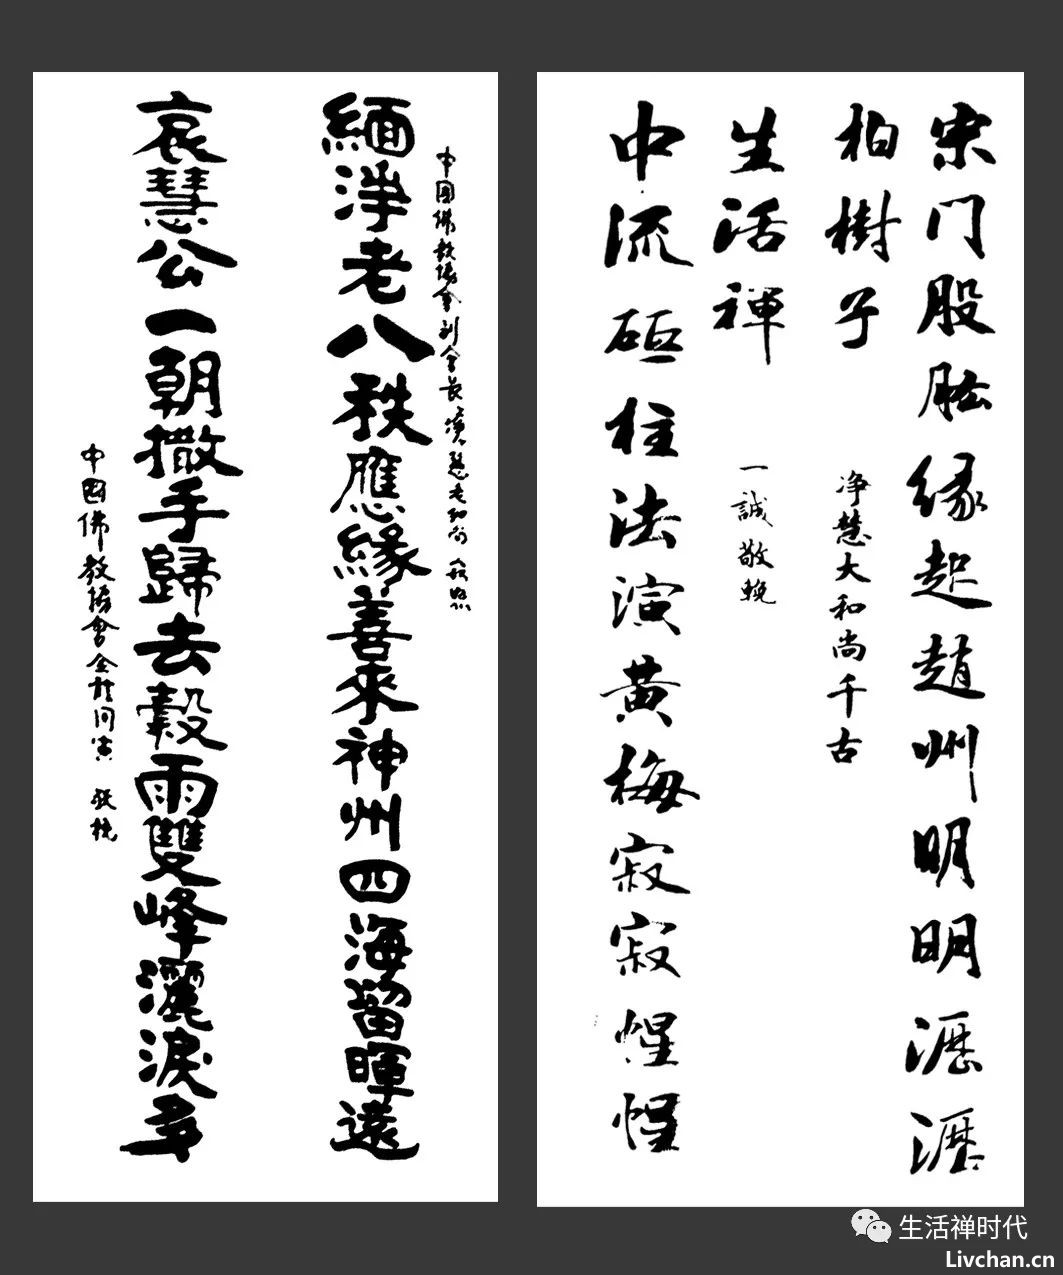 宗门股肱缘起趙州明明瀝瀝
柏樹子
净慧大和尚千古
生活禅
一誠敬輓
中流砥柱法演黄梅寂寂惺惺
中國佛教協會副會長淨慧老和尚
緬淨老八秩應緣善來神州四海留暉遠
哀慧公一朝撒手歸去穀雨雙峰灑淚多
中國佛教協會全體同寅 敬挽
生活禅时代
Livchan.cn